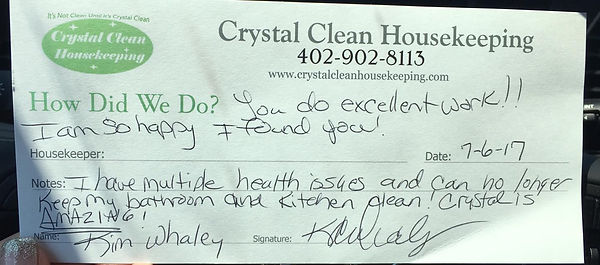 It's Not Clean Until It's Crystal Clean
Crystal Clean
Housekeeping
Crystal Clean Housekeeping
402-902-8113
www.crystalcleanhousekeeping.com
How Did We Do? You do excellent work!!
I am so happy I found you!
Housekeeper:
Date: 7-6-17
Notes: I have multiple health issues and can no longer
Keep my bathroom and Kitchen clean! Crystal is
AMAZING!
Name: Kim Whaley
Signature: K Whaley